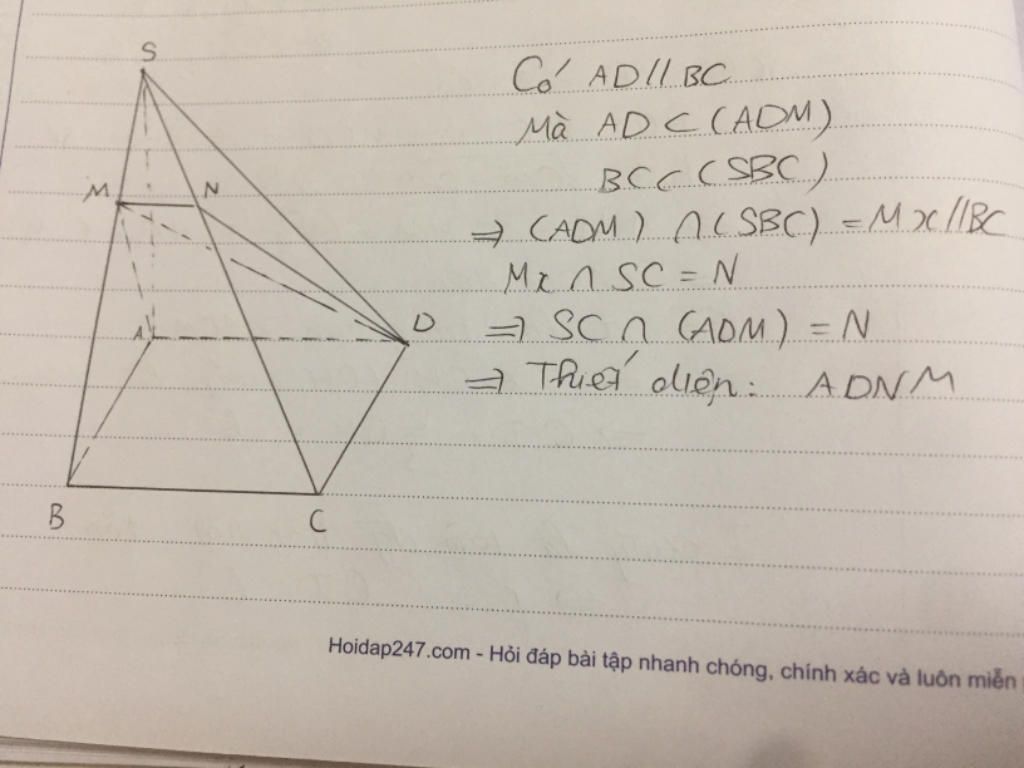 S
M
N
A
D
B
C
Có AD // BC
Mà AD ⊂ (ADM)
BC ⊂ (SBC)
⇒ (ADM) ∩ (SBC) = Mx // BC
Mx ∩ SC = N
⇒ SC ∩ (ADM) = N
⇒ Thiết diện: ADNM
Hoidap247.com - Hỏi đáp bài tập nhanh chóng, chính xác và luôn miễn